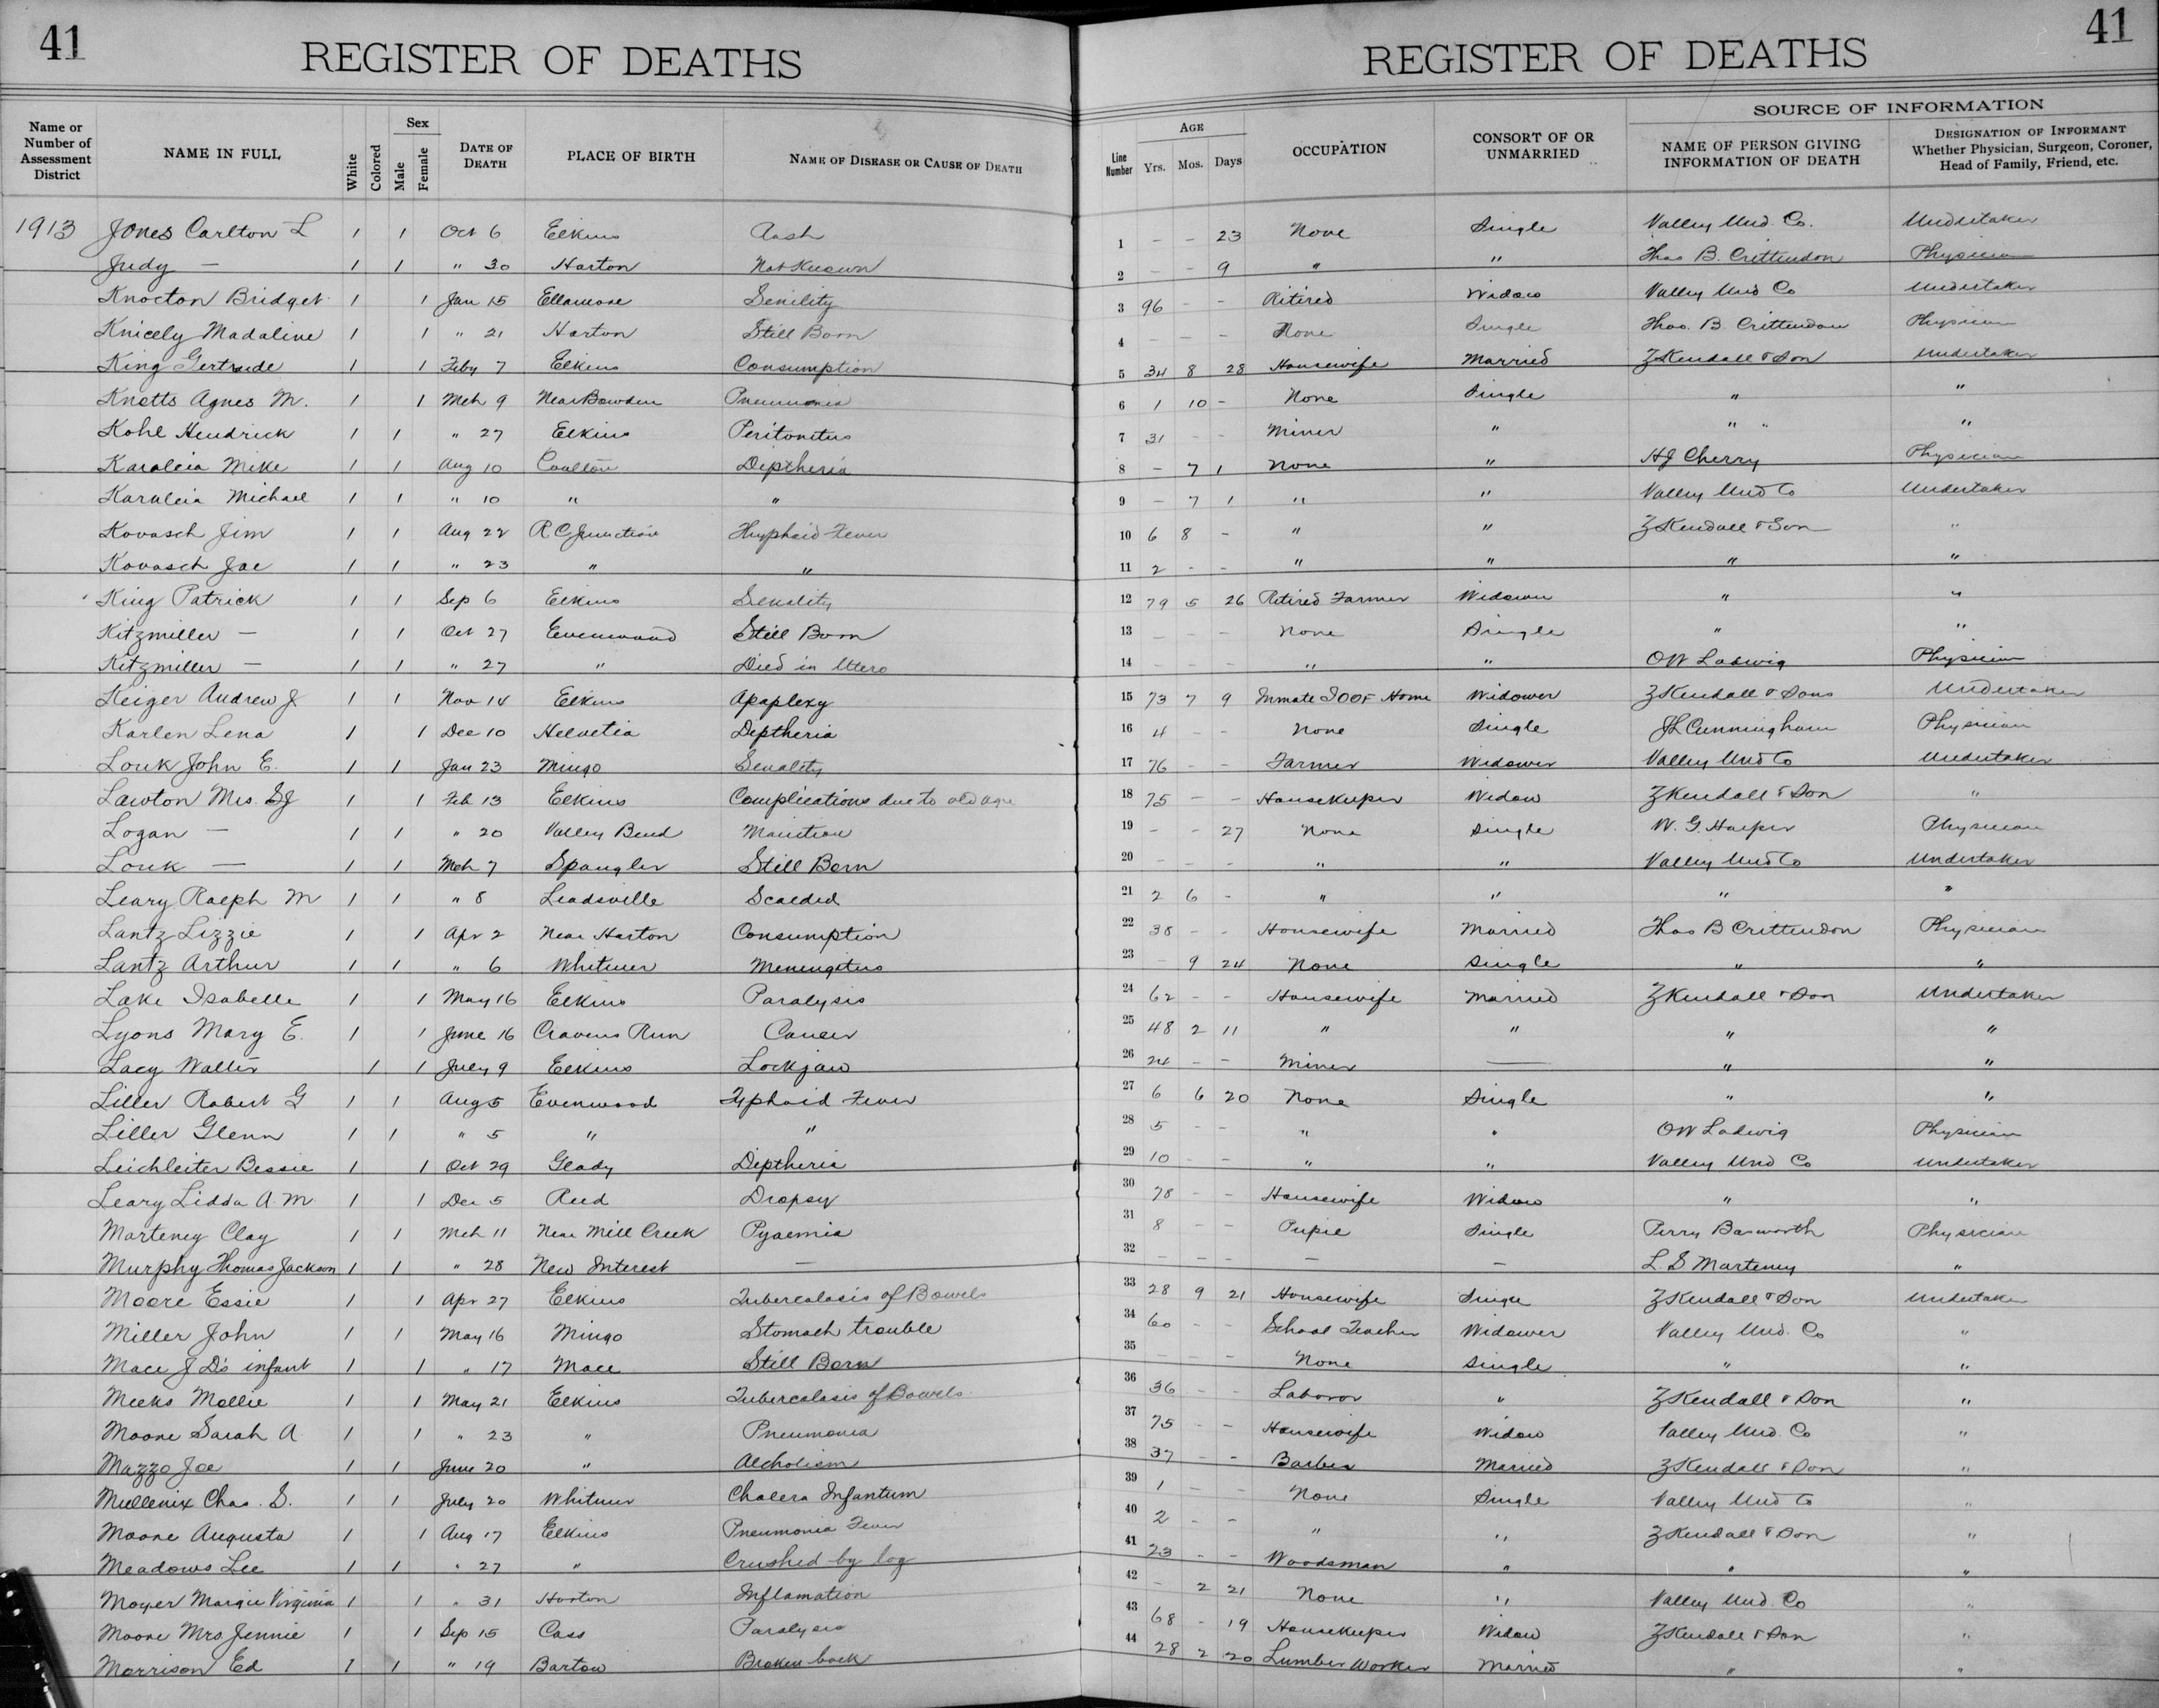 41
REGISTER OF DEATHS
Name or Number of Assessment District | NAME IN FULL | White | Colored | Sex Male | Female | DATE OF DEATH | PLACE OF BIRTH | NAME OF DISEASE OR CAUSE OF DEATH
1913 Jones Carlton L 1 1 Oct 6 Elkins
Judy — 1 1 " 30 Harton Not Known
Knocton Bridget 1 1 Jan 15 Ellamore Senility
Knicely Madaline 1 1 " 21 Harton Still Born
King Gertrude 1 1 Feby 7 Elkins Consumption
Knotts Agnes M. 1 1 Mch 9 Near Bowden Pneumonia
Kohl Hendrick 1 1 " 27 Elkins Peritonitus
Karalcia Mike 1 1 Aug 10 Coalton Diptheria
Karalcia Michael 1 1 " 10 " "
Kovasch Jim 1 1 Aug 22 R C Junction Thyphoid Fever
Kovasch Joe 1 1 " 23 " "
King Patrick 1 1 Sep 6 Elkins Senality
Kitzmiller — 1 1 Oct 27 Evenwood Still Born
Kitzmiller — 1 1 " 27 " Died in Utero
Keiger Andrew J 1 1 Nov 14 Elkins Apaplexy
Karlen Lena 1 1 Dec 10 Helvetia Diptheria
Louk John E. 1 1 Jan 23 Mingo Senality
Lawton Mrs. S J 1 1 Feb 13 Elkins Complications due to old age
Logan — 1 1 " 20 Valley Bend
Louk — 1 1 Mch 7 Spangler Still Born
Leary Ralph M 1 1 " 8 Leadsville Scalded
Lantz Lizzie 1 1 Apr 2 Near Harton Consumption
Lantz Arthur 1 1 " 6 Whitmer Meningitus
Lake Isabelle 1 1 May 16 Elkins Paralysis
Lyons Mary E. 1 1 June 16 Cravens Run Cancer
Lacy Walter 1 1 July 9 Elkins Lockjaw
Liller Robert G 1 1 Aug 5 Evenwood Typhoid Fever
Liller Glenn 1 1 " 5 " "
Leichleiter Bessie 1 1 Oct 29 Glady Diptheria
Leary Lidda A. M 1 1 Dec 5 Reed Dropsy
Marteney Clay 1 1 Mch 11 Near Mill Creek Pyaemia
Murphy Thomas Jackson 1 1 " 28 New Interest —
Moore Essie 1 1 Apr 27 Elkins Tubercalosis of Bowels
Miller John 1 1 May 16 Mingo Stomach trouble
Mace J D's infant 1 1 " 17 Mace Still Born
Meeks Mollie 1 1 May 21 Elkins Tubercalosis of Bowels
Moore Sarah A 1 1 " 23 " Pneumonia
Mazzo Joe 1 1 June 20 " Alcholism
Mullenix Chas. S. 1 1 July 20 Whitmer Cholera Infantum
Moore Augusta 1 1 Aug 17 Elkins Pneumonia Fever
Meadows Lee 1 1 " 27 " Crushed by log
Moyer Margie Virginia 1 1 " 31 Horton Inflamation
Moore Mrs. Jennie 1 1 Sep 15 Cass Paralysis
Morrison Ed 1 1 " 19 Bartow Broken back
41
REGISTER OF DEATHS
Line Number | AGE Yrs. | Mos. | Days | OCCUPATION | CONSORT OF OR UNMARRIED | SOURCE OF INFORMATION NAME OF PERSON GIVING INFORMATION OF DEATH | DESIGNATION OF INFORMANT Whether Physician, Surgeon, Coroner, Head of Family, Friend, etc.
1 – – 23 None Single Valley Und. Co. Undertaker
2 – – 9 " " Thos B. Crittendon Physician
3 96 – – Retired Widow Valley Und Co Undertaker
4 – – – None Single Thos. B. Crittendon Physician
5 34 8 28 Housewife Married Z Kendall & Son Undertaker
6 1 10 – None Single " "
7 31 – – Miner " " " "
8 – 7 1 None " H J Cherry Physician
9 – 7 1 " " Valley Und Co Undertaker
10 6 8 – " " Z Kendall & Son "
11 2 – – " " " "
12 79 5 26 Retired Farmer Widower " "
13 – – – None Single " "
14 – – – " " O W Ladwig Physician
15 73 7 9 Inmate I O O F Home Widower Z Kendall & Sons Undertaker
16 4 – – None Single J L Cunningham Physician
17 76 – – Farmer Widower Valley Und Co Undertaker
18 75 – – Housekeeper Widow Z Kendall & Son "
19 – – 27 None Single W. G. Harper Physician
20 – – – " " Valley Und Co Undertaker
21 2 6 – " " " "
22 38 – – Housewife Married Thos B Crittendon Physician
23 – 9 24 None Single " "
24 62 – – Housewife Married Z Kendall & Son Undertaker
25 48 2 11 " " " "
26 24 – – Miner — " "
27 6 6 20 None Single " "
28 5 – – " " O W Ladwig Physician
29 10 – – " " Valley Und Co Undertaker
30 78 – – Housewife Widow " "
31 8 – – Pupil Single Perry Bosworth Physician
32 – – – – – L. S Marteney "
33 28 9 21 Housewife Single Z Kendall & Son Undertaker
34 60 – – School Teacher Widower Valley Und. Co "
35 – – – None Single " "
36 36 – – Laboror " Z Kendall & Son "
37 75 – – Housewife Widow Valley Und. Co "
38 37 – – Barber Married Z Kendall & Son "
39 1 – – None Single Valley Und Co "
40 2 – – " " Z Kendall & Son "
41 23 – – Woodsman " " "
42 – 2 21 None " Valley Und. Co "
43 68 – 19 Housekeeper Widow Z Kendall & Son "
44 28 2 20 Lumber Worker Married " "